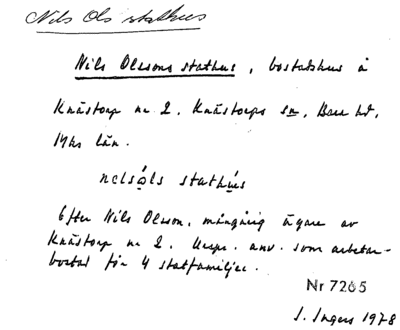 Nils Ols stathus
Nils Olssons stathus, bostadshus å
Knästorp nr 2, Knästorps sn, Bara hd,
Mhs län.
nelsóls stathús
Efter Nils Olsson, mångårig ägare av
Knästorp nr 2. Urspr. anv. som arbetar-
bostad för 4 statfamiljer.
Nr 7205
I. Ingers 1978